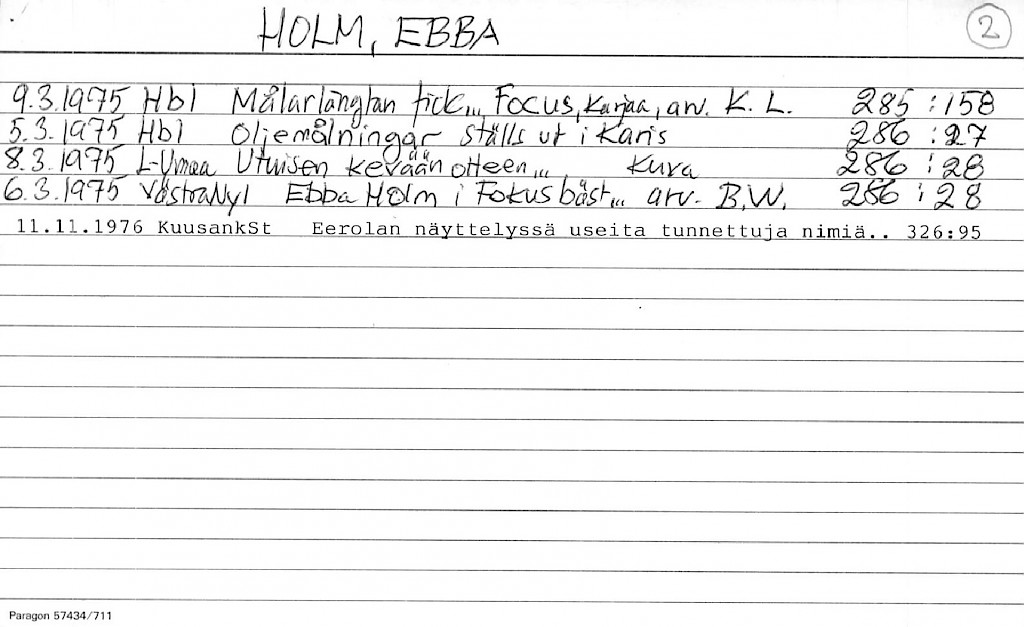 HOLM, EBBA
2
9.3.1975 Hbl Målarlängtan fick... Focus, Karjaa, arv. K. L. 285:158
5.3.1975 Hbl Oljemålningar ställs ut i Karis 286:27
8.3.1975 L-Uusimaa Utuisen kevään otteen... Kuva 286:28
6.3.1975 VästraNyl Ebba Holm i Fokus bäst... arv. B.W. 286:28
11.11.1976 KuusankSt Eerolan näyttelyssä useita tunnettuja nimiä.. 326:95
Paragon 57434/711